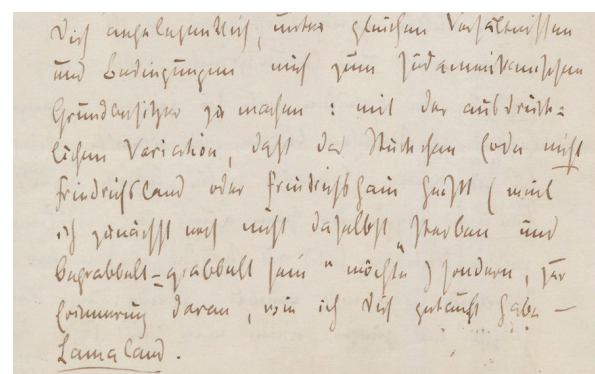 Dich angelegentlich, unter gleichen Verhältnissen
und Bedingungen mich zum südamerikanischen
Grundbesitzer zu machen: mit der ausdrück-
lichen Variation, daß das Stückchen Erde nicht
Friedrichsland oder Friedrichshain heißt (weil
ich zunächst noch nicht daselbst „sterben und
begrabbelt-grabbelt sein" möchte) sondern, zur
Erinnerung daran, wie ich Dich getauft habe —
Lamaland.